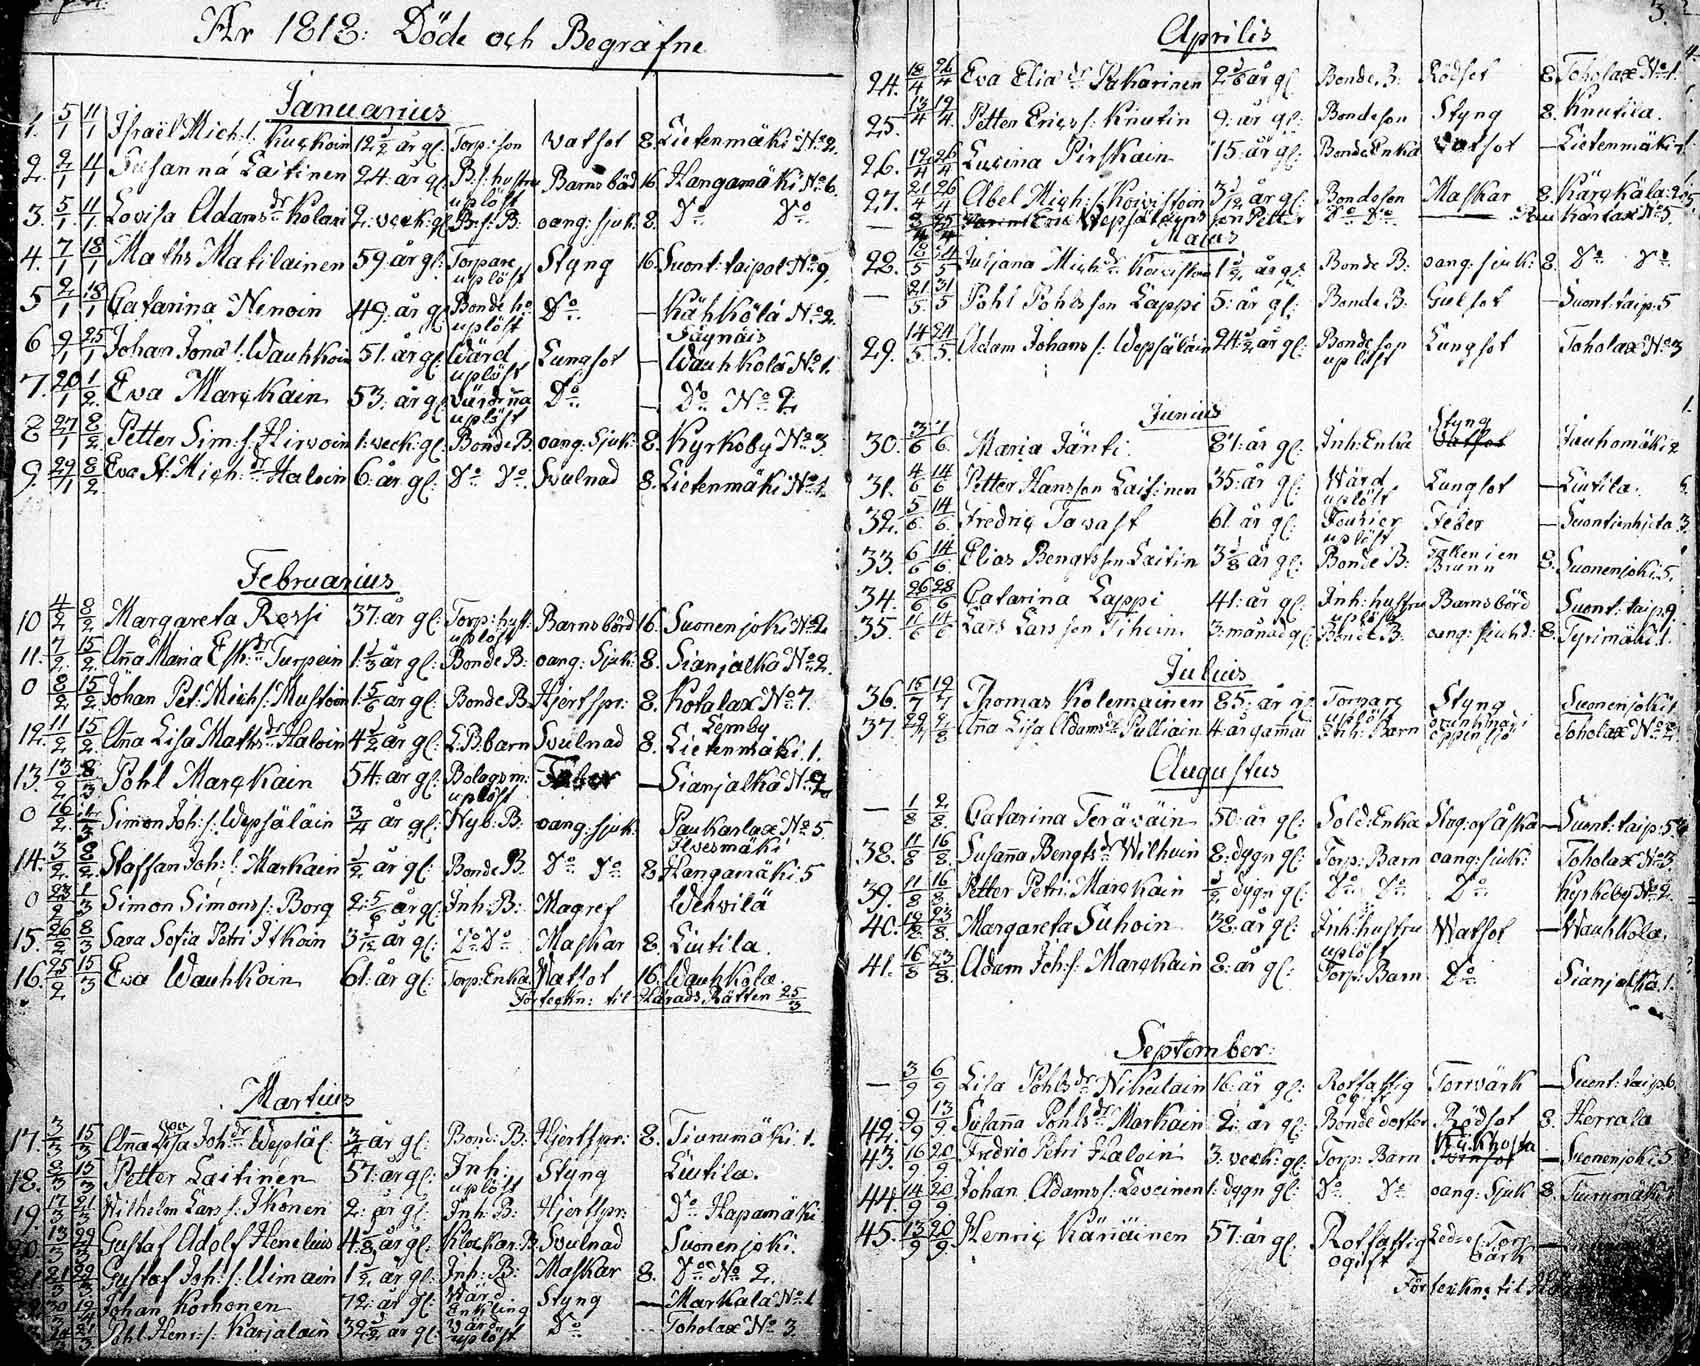 År 1818: Döde och Begrafne
Januarius
1. 5/1 11/1 Israël Mich:s: Kuckoin 12 1/2 år gl: Torp:son Vatsot 8. Lietenmäki No 2.
2. 2/1 11/1 Susanna Laitinen 24: år gl B:s: hustru Barnsbörd 16. Hangamäki No 6.
uplöst
3. 5/1 11/1 Lovisa Adams dr Kolari 2: veck: gl B:s: B: oang: sjuk: 8. Do Do
4. 7/1 18/1 Maths Matilainen 59 år gl: Torpare Styng 16. Suont:taipal No 9.
uplöst
5 2/1 18/1 Catarina Nenoin 49: år gl Bonde h: Do — Kähkölä No 2.
uplöst Säynäis
6 9/1 25/1 Johan Jona s: Wauhkoin 51. år gl Wärd Lungsot — Wauhkola No 1.
uplöst
7. 20/1 1/2 Eva Marckain 53: år gl Do — Do No 2
uplöst
8 27/1 8/2 Petter Sim: s: Hirvoin 1: veck: gl: Bonde B oang: Sjuk: 8. Kyrkoby No 3
9 29/1 8/2 Eva St: Mich: dr Haloin 6: år: gl: Do Do Svulnad 8. Lietenmäki No 1.
Februarius
10 4/2 8/2 Margareta Rossi 37: år gl: Torp: hust: Barnsbörd 16. Suonenjoki No 2
uplöst
11. 7/2 15/2 Anna Maria Esk: dr Turpein 1 1/3 år gl: Bonde B: oang: Sjuk: 8. Sianjalka No 2.
0 8/2 15/2 Johan Pet: Mich s: Mustoin 1 5/6 år gl: Bonde B Hjertspr: 8. Kotalax No 7.
Lemby
12. 11/2 15/2 Anna Lisa Maths dr Haloin 4 1/2 år gl: L.B. barn Svulnad 8. Lietenmäki 1.
13. 13/2 8/3 Pohl Marckain 54: år gl: Bolagsm: Feber — Sianjalka No 2
uplöst
0 16/2 Simon Joh: s: Wepsäläin 3/4 år gl: Nyb: B: oang: sjuk: Paukarlax No 5.
Ilvesmäki
14. 3/2 8/2 Staffan Joh: s: Markain 1/2 år gl: Bonde B. Do Do 8 Hangamäki 5
0 23/2 1/3 Simon Simons s: Borg 2 5/6 år gl: Inh: B: Magref Wehvilä
15. 26/2 8/3 Sara Sofia Petri Itkoin 3 1/12 år gl: Do Do Maskar 8. Liutila.
16. 25/2 15/3 Eva Wauhkoin 61: år gl: Torp: Enka Vatsot 16. Wauhkola.
Förteckn: til Härads Rätten 25/3
Martius
17. 3/3 15/3 Anna Lisa Joh: dr Wepsäl: 3/4 år gl: Bond: B: Hjertspr: 8. Tiurumäki: 1.
18. 8/3 15/3 Petter Laitinen 57: år gl: Inh: Styng Liutila.
uplöst
19. 17/3 21/3 Wilhelm Lars s: Ikonen 2: år gl: Inh: B: Hjertspr: Do Hapamäki
13/3 29/3 Gustaf Adolf Henelius 4 1/8 år gl: Klockar: B. Svulnad Suonenjoki.
Gustaf Joh: s: Uimain 1 1/2 år gl: Inh: B: Maskar 8. Do No 2.
Johan Korhonen 72: år gl: Wärd Styng — Markala No 1
Enkling
Pohl Henr: s: Karjalain 32 1/2 år gl: Wärd Do Toholax No 3.
uplöst
3.
Aprilis
24. 18/4 26/4 Eva Elia dr Pakarinen 2 5/6 år gl: Bonde B: Rödsot 8 Toholax No 1.
25. 13/4 19/4 Petter Erics s: Knutin 9: år gl: Bondeson Styng 8. Knutila.
26. 12/4 26/4 Lucina Pirskain 15: år gl: Bonde Enka Vatsot — Lietenmäki
27. 21/4 26/4 Abel Mich: s: Koivistoin 3 1/12 år gl: Bondeson Maskar 8 Kärckälä: 2
— Eric Wepsäläins son Petter Do Do Paukarlax No 5.
Maius
28. 10/5 Juliana Mich dr Koivistoin 1 1/2 år gl: Bonde B: oang: sjuk: 8. Do Do
— 21/5 31/5 Pohl Pohls son Lappi 5: år gl: Bonde B. Gulsot — Suont: taip: 5
29. 14/5 24/5 Adam Johans s: Wepsäläin 24 1/2 år gl: Bondeson Lungsot Toholax No 3
uplöst
Junius
Styng
30. 3/6 7/6 Maria Jänti 81: år gl: Inh: Enka Vatsot Jauhomäki 2
31. 4/6 14/6 Petter Hansson Laitinen 35: år gl: Wärd Lungsot — Liutila.
uplöst
32. 5/6 14/6 Fredric Tavast 61: år gl: Fourier Feber — Suontienhieta
uplöst
33. 6/6 14/6 Elias Bengtsson Laitin 3 1/8 år gl: Bonde B: Fallen i en 8. Suonenjoki 5.
Brunn
34. 26/6 28/6 Catarina Lappi 41: år gl: Inh: hustru Barnsbörd Suont: taip 9.
uplöst
35. 11/6 14/6 Lars Larsson Tihein 3: månad gl: Bonde B: oang: sjukd: 8. Tyrimäki 1.
Julius
36. 15/7 19/7 Thomas Kolemainen 85: år gl: Torpare Styng Suonenjoki 1
uplöst
37. 29/7 2/8 Anna Lisa Adams dr Pulliain 4 år gammal Inh: Barn drunknad i Toholax No 2.
öppen sjö
Augustus
— 1/8 2/8 Catarina Teräväin 50: år gl: Sold: Enka Slag: af åska — Suont: taip: 5
38. 11/8 16/8 Susanna Bengts dr Wilhuin 8: dygn gl: Torp: Barn oang: sjuk: Toholax No 3.
39. 11/8 16/8 Petter Petri: Marckain 1/2 dygn gl: Do Do Do Kyrkoby No 2.
40. 19/8 23/8 Margareta Suhoin 38: år gl: Inh: hustru Watsot — Wauhkola.
uplöst
41. 16/8 23/8 Adam Joh: s: Marckain 8: år gl: Torp: Barn Do Sianjalka 1.
September:
— 3/9 6/9 Lisa Pohls dr Nihulain 16: år gl: Rotfattig Torrvärk — Suont: taip: 6.
ogift
42. 9/9 13/9 Susanna Pohls dr Markain 2: år gl: Bonde dotter Rödsot 8. Herrala
43. 16/9 20/9 Fredric Petri Haloin 3: veck: gl: Torp: Barn Kikhosta — Suonenjoki 5
44. 14/9 20/9 Johan Adams s: Leveinen 1: dygn gl: Do Do oang: Sjuk 8. Tiurumäki 1
45. 13/9 20/9 Henric Käriäinen 57: år gl: Rotfattig Ledve: Torr
ogift värk
Förteckn: til